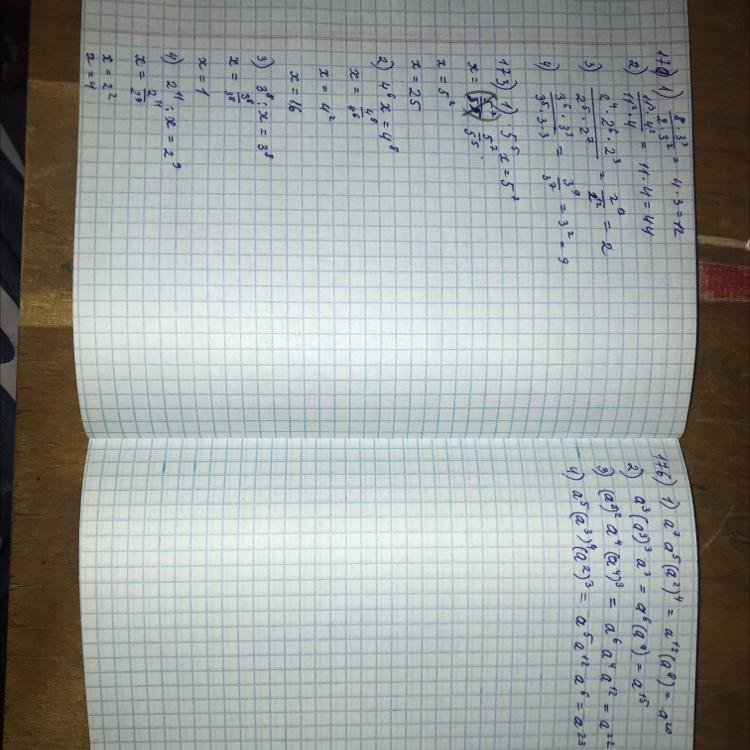 170) 1) 8·3³/2·3² = 4·3 = 12
2) 11³·4²/11²·4 = 11·4 = 44
3) 2⁴·2⁶·2³/2⁵·2⁷ = 2¹³/2¹² = 2
4) 3⁶·3³/3⁵·3·3 = 3⁹/3⁷ = 3² = 9
173) 1) 5⁵x = 5⁷
x = 5⁷/5⁵
x = 5²
x = 25
2) 4⁶x = 4⁸
x = 4⁸/4⁶
x = 4²
x = 16
3) 3⁸ : x = 3⁸
x = 3⁸/3⁸
x = 1
4) 2¹¹ : x = 2⁹
x = 2¹¹/2⁹
x = 2²
x = 4
176) 1) a⁷ a⁵(a²)⁴ = a¹²(a⁸) = a²⁰
2) a³(a³)³ a³ = a⁶(a⁹) = a¹⁵
3) (a³)² a⁴(a⁴)³ = a⁶ a⁴ a¹² = a²²
4) a⁵(a³)⁴(a²)³ = a⁵ a¹² a⁶ = a²³